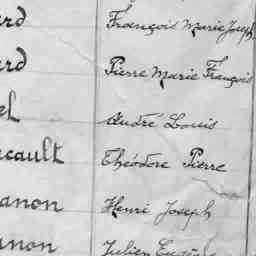 ard François Marie Joseph
ard Pierre Marie François
el André Louis
cault Théodore Pierre
anon Henri Joseph
anon Julien